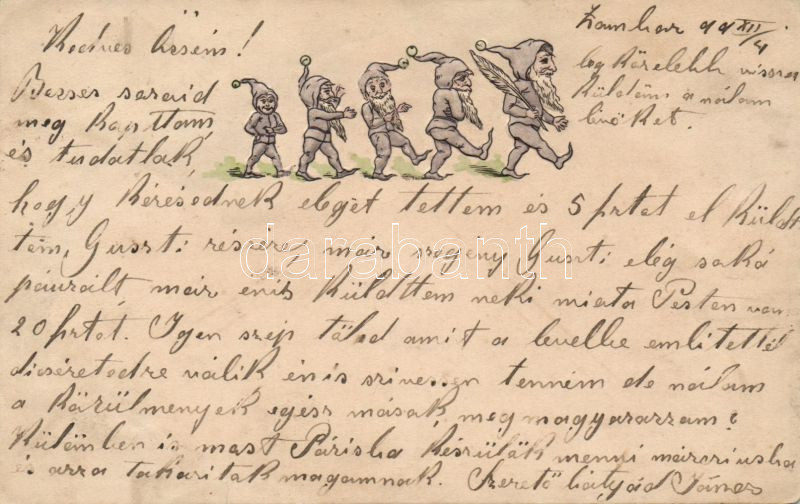 Kedves Öcsém!
Zombor 99 XII/4
Becses soraid
meg kaptam
és tudatlak
leg közelebb vissza
küldöm a nálam
levőket.
hogy kérésednek eleget tettem és 5 frtot el küldt
tem, Guszti részére, már szegény Guszti elég soká
pauzált már énis küldtem neki miota Pesten van
20 frtot. Igen szép tőled amit a levelbe emlitettél
dicséretedre válik én is szivessen tenném de nálam
a körülmények egész mások, meg magyarázzam?
Külömben is most Párisba készülök menni márciusba
és arra takaritok magamnak. Szerető bátyád János
darabanth